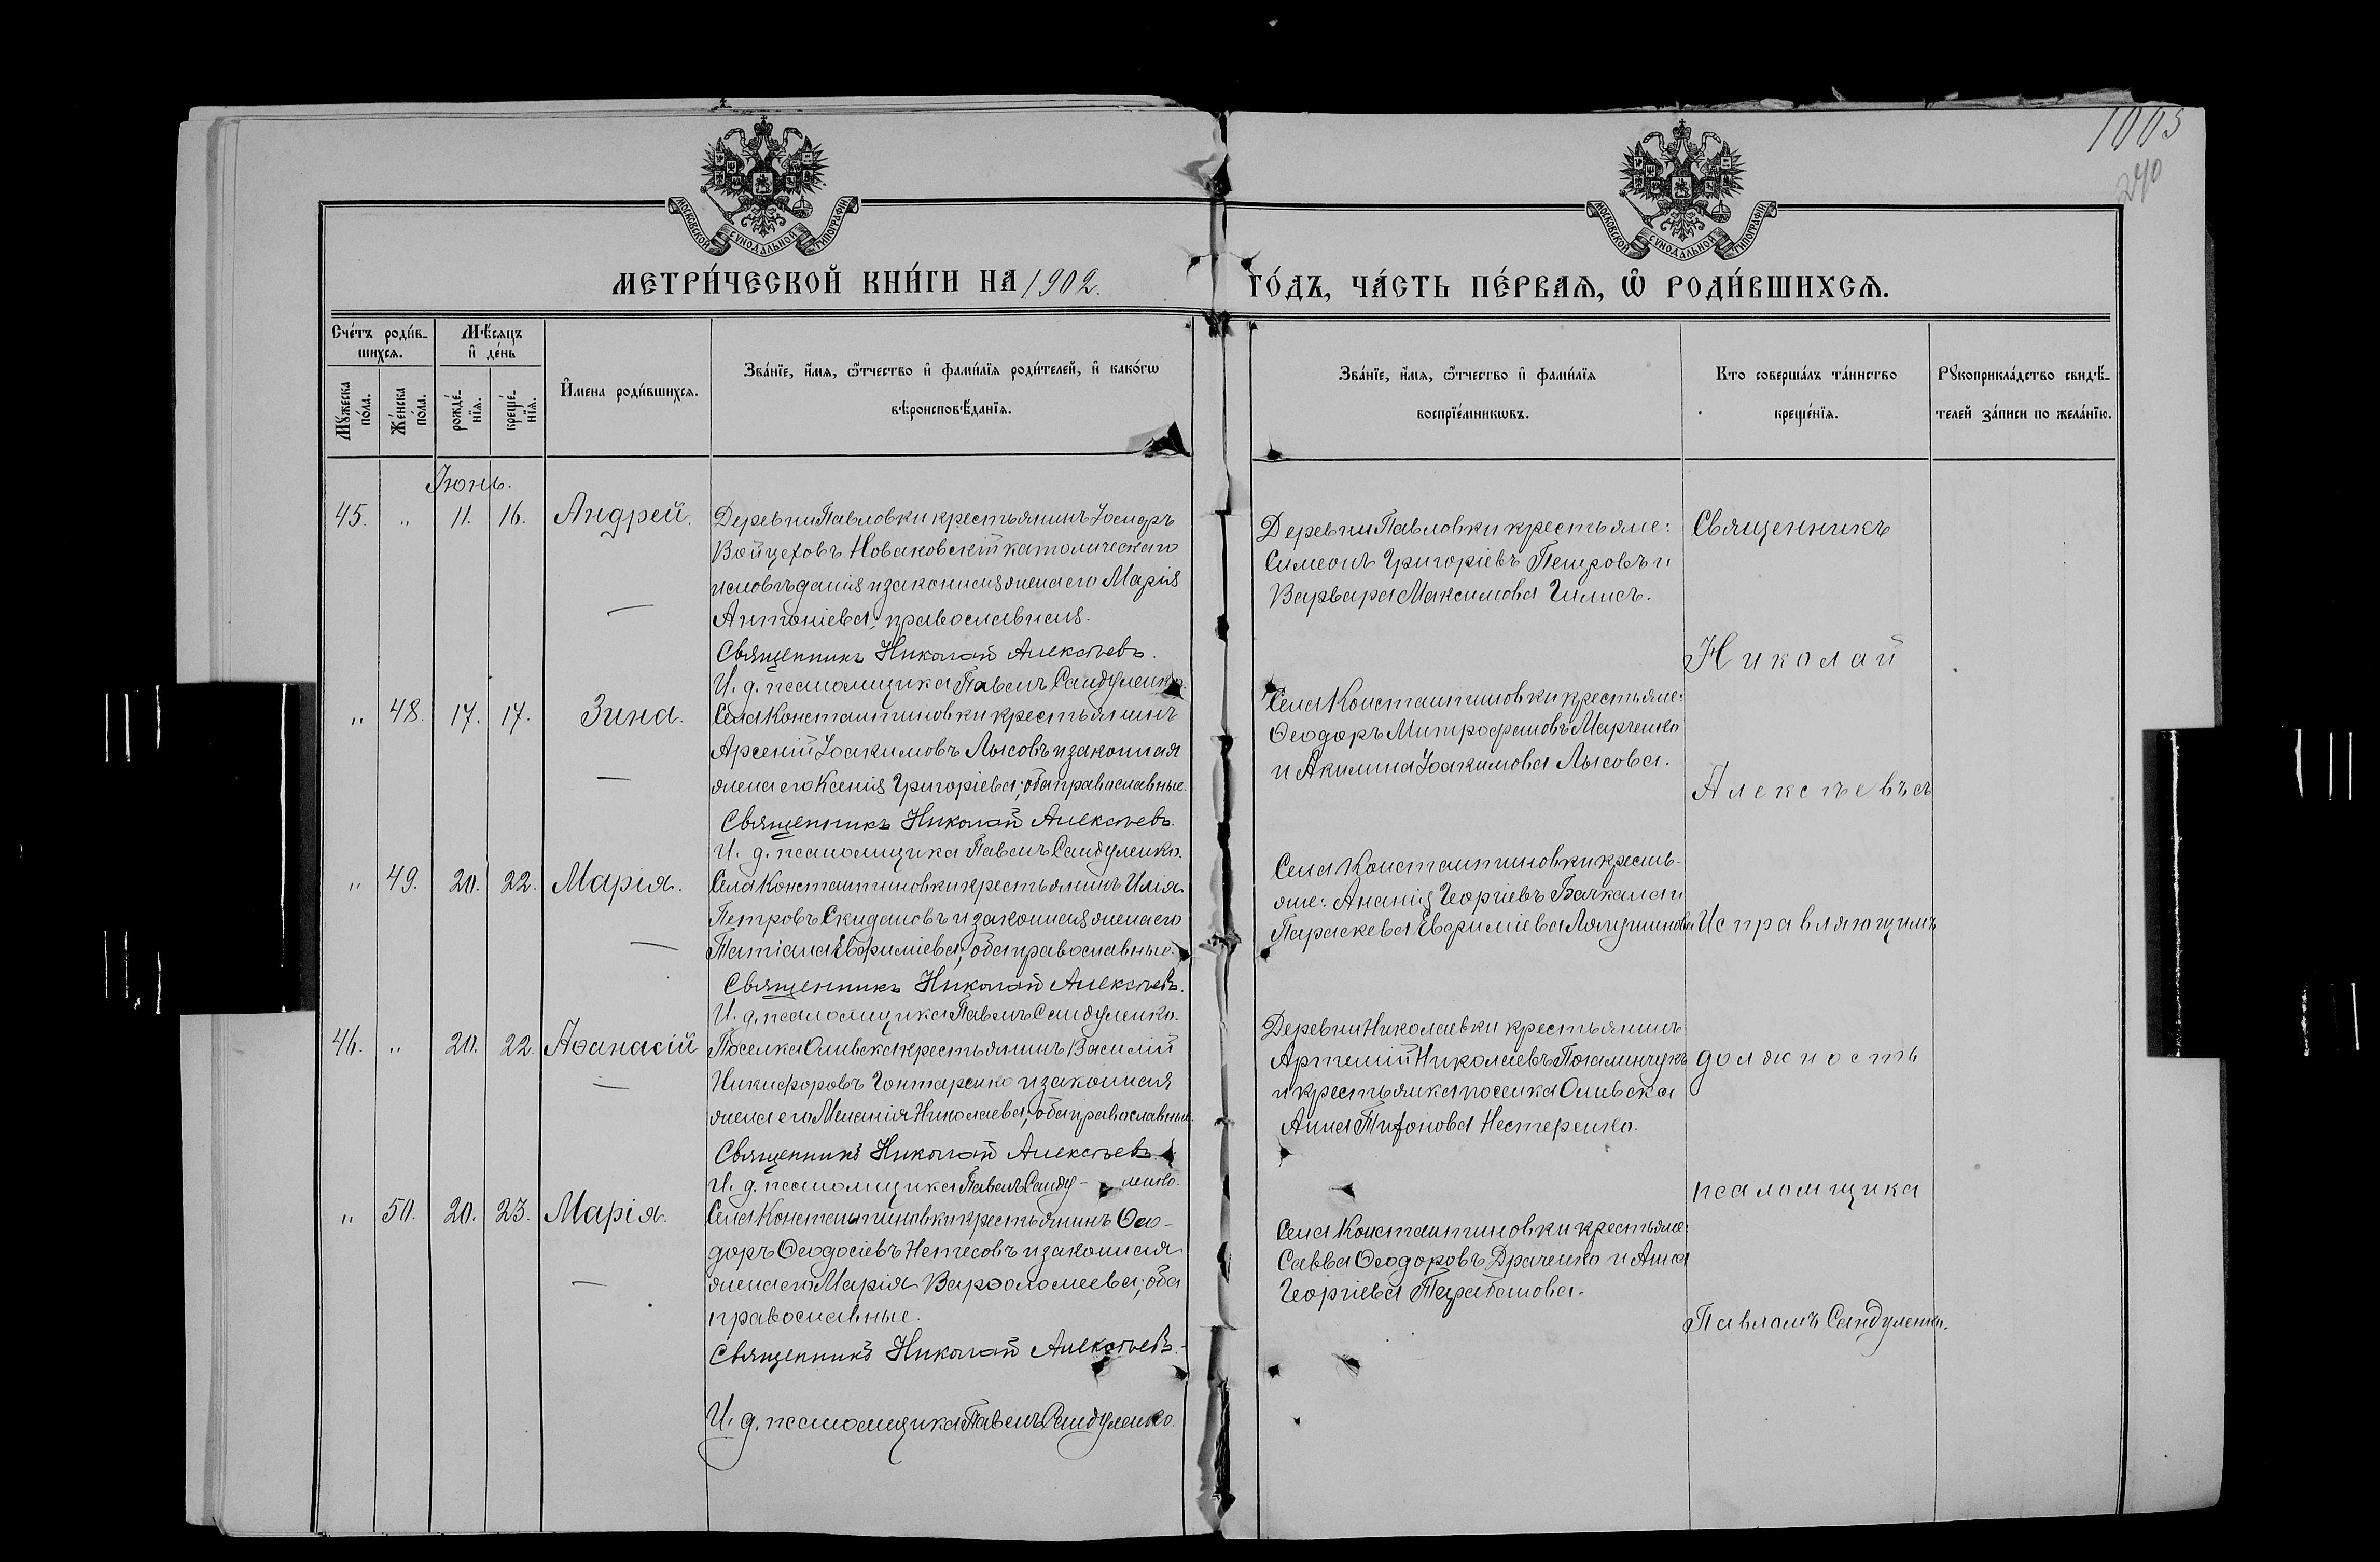 1003
270
МОСКОВСКОЙ СѴНОДАЛЬНОЙ ТИПОГРАФІИ
МОСКОВСКОЙ СѴНОДАЛЬНОЙ ТИПОГРАФІИ
МЕТРИ́ЧЕСКОЙ КНИ́ГИ НА 1902. ГО́ДЪ, ЧА́СТЬ ПЕ́РВАѦ, Ѡ҆ РОДИ́ВШИХСѦ.
Сче́тъ роди́в-
шихсѧ.
Мѣ́сѧцъ
и҆ де́нь
Мꙋ́жеска
по́ла.
Же́нска
по́ла.
рожде́-
нїѧ.
креще́-
нїѧ.
И҆мена роди́вшихсѧ.
Зва́нїе, и҆́мѧ, ѻ҆́тчество и҆ фами́лїѧ роди́телей, и҆ како́гѡ
вѣроисповѣ́данїѧ.
Зва́нїе, и҆́мѧ, ѻ҆́тчество и҆ фами́лїѧ
воспрїе́мникѡвъ.
Кто соверша́лъ та́инство
креще́нїѧ.
Рꙋкоприкла́дство свидѣ́-
телей за́писи по жела́нїю.
Іюнь.
45. " 11. 16. Андрей.
Деревни Павловки крестьянинъ Іосифъ
Войцеховъ Новаковскій католическаго
исповѣданія и законная жена его Марія
Антоніева, православная.
Священникъ Николай Алексѣевъ.
И. д. псаломщика Павелъ Сандуленко.
Деревни Павловки крестьяне:
Симеонъ Григоріевъ Петровъ и
Варвара Максимова
" 48. 17. 17. Зина.
Села Константиновки крестьянинъ
Арсеній Іоакимовъ Лысовъ и законная
жена его Ксенія Григоріева; оба православные.
Священникъ Николай Алексѣевъ.
И. д. псаломщика Павелъ Сандуленко.
Села Константиновки крестьяне:
Ѳеодоръ Митрофановъ Марченко
и Акилина Іоакимова Лысова.
" 49. 20. 22. Марія.
Села Константиновки крестьянинъ Илія
Петровъ Скидановъ и законная жена его
Татіана Евфиміева; оба православные.
Священникъ Николай Алексѣевъ.
И. д. псаломщика Павелъ Сандуленко.
Села Константиновки кресть-
яне: Ананія Георгіевъ Бачкала и
Параскева Евфиміева
46. " 20. 22. Аѳанасій
Поселка Ольвска крестьянинъ Василій
Никифоровъ Гонтаренко и законная
жена его Меланія Николаева; оба православные.
Священникъ Николай Алексѣевъ.
И. д. псаломщика Павелъ Санду- ленко.
Деревни Николаевки крестьянинъ
Артемій Николаевъ
и крестьянка поселка Ольвска
Анна Тихонова Нестеренко.
" 50. 20. 23. Марія.
Села Константиновки крестьянинъ Ѳео-
доръ Ѳеодосіевъ Нетесовъ и законная
жена его Марія Варѳоломеева; оба
православные.
Священникъ Николай Алексѣевъ.
И. д. псаломщика Павелъ Сандуленко.
Села Константиновки крестьяне:
Савва Ѳеодоровъ Драченко и Анна
Георгіева Тарабанова.
Священникъ
Николай
Алексѣевъ съ
Исправляющимъ
должность
псаломщика
Павломъ Сандуленко.